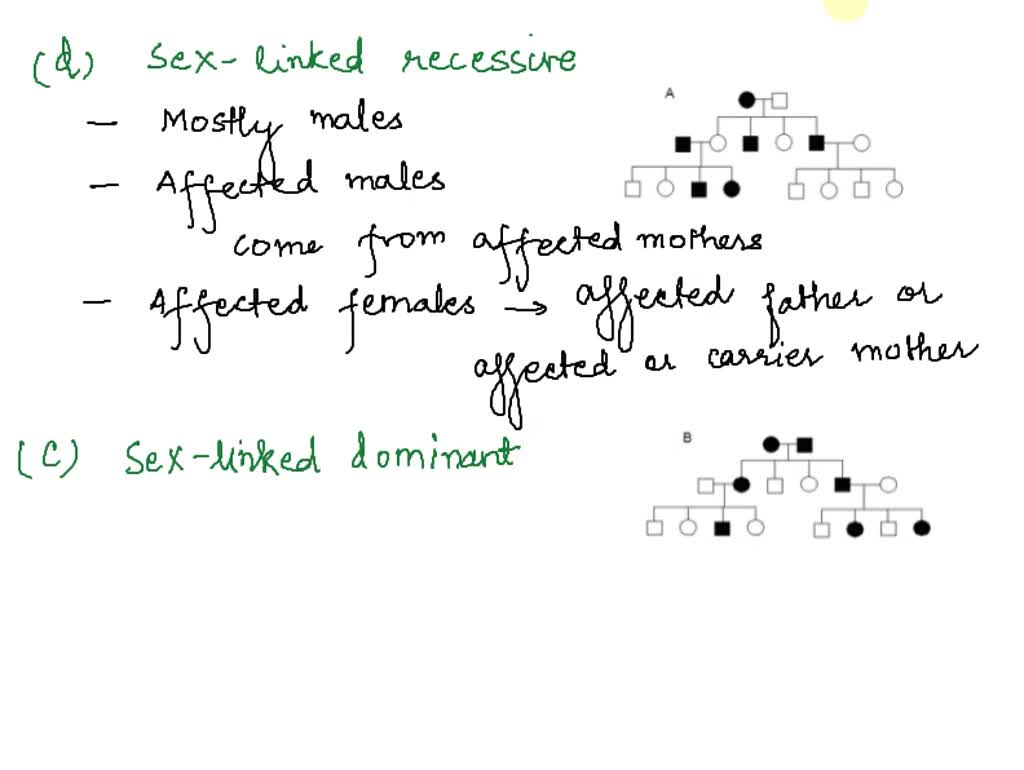 (d) Sex-linked recessive
A
- Mostly males
- Affected males
come from affected mothers
- Affected females → affected father or
affected or carrier mother
(C) Sex-linked dominant
B